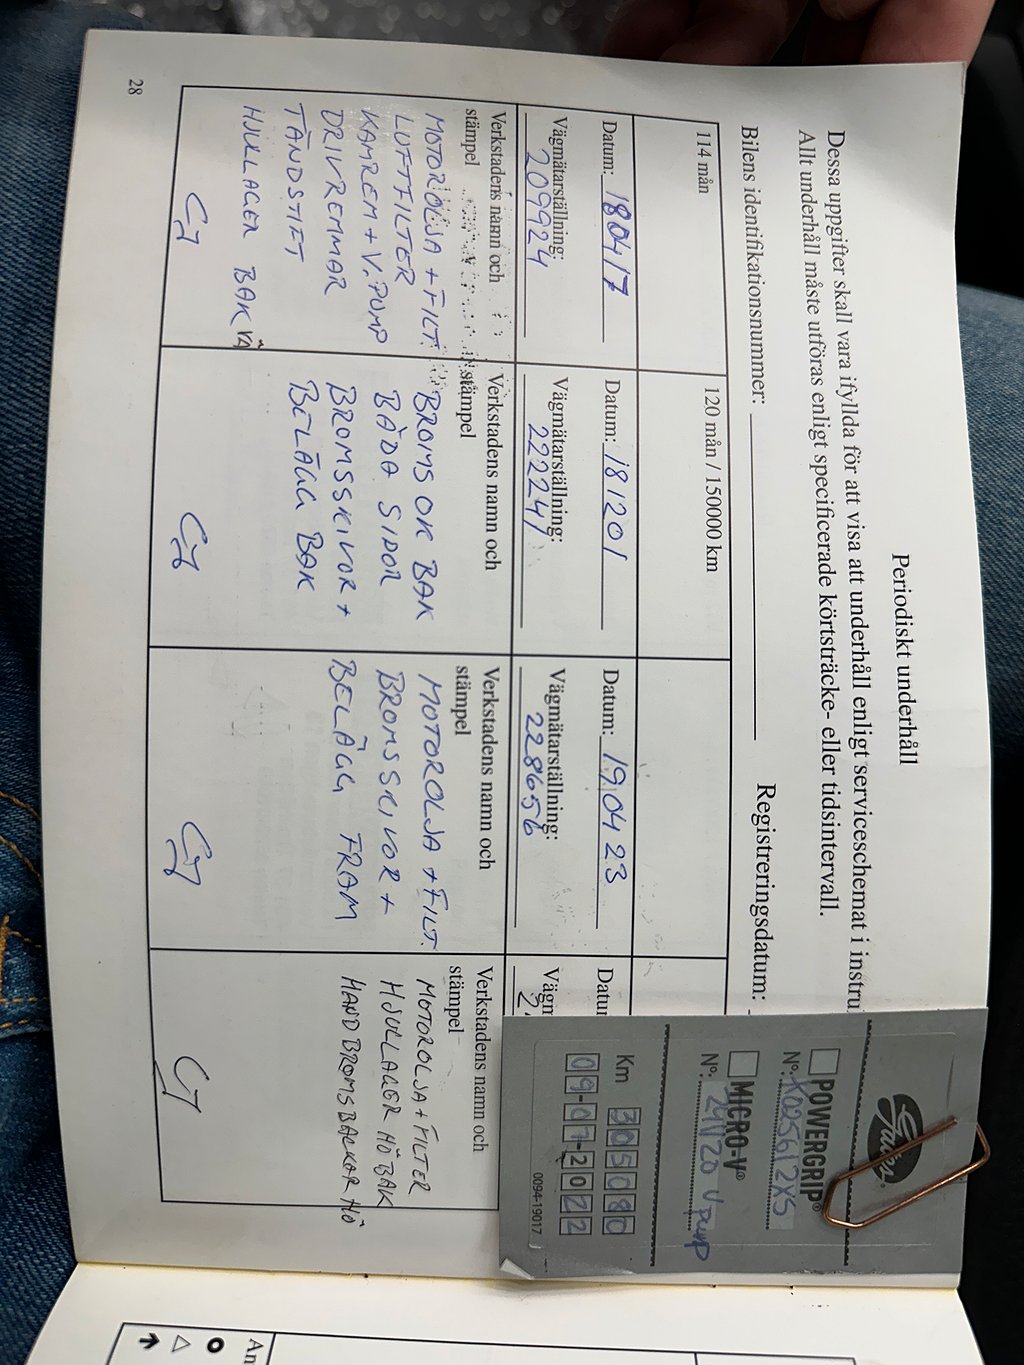 Periodiskt underhåll
Dessa uppgifter skall vara ifyllda för att visa att underhåll enligt serviceschemat i instru
Allt underhåll måste utföras enligt specificerade körtsträcke- eller tidsintervall.
Bilens identifikationsnummer:
Registreringsdatum:
114 mån
Datum: 180417
Vägmätarställning:
209924
Verkstadens namn och
stämpel
MOTOROLJA + FILT.
LUFTFILTER
KAMREM + V.PUMP
DRIVREMMAR
TÄNDSTIFT
HJULLAGER BAK VÄ
CJ
120 mån / 150000 km
Datum: 181201
Vägmätarställning:
222247
Verkstadens namn och
stämpel
BROMSOK BAK
BÅDA SIDOR
BROMSSKIVOR +
BELÄGG BAK
CJ
Datum: 190423
Vägmätarställning:
228656
Verkstadens namn och
stämpel
MOTOROLJA + FILT.
BROMSSKIVOR +
BELÄGG FRAM
CJ
Datu
Vägn
2
Verkstadens namn och
stämpel
MOTOROLJA + FILTER
HJULLAGER HÖ BAK
HANDBROMSBACKAR HÖ
CJ
Gates
POWERGRIP®
Nº: K025612XS
MICRO-V®
Nº: V pump
Km 305080
09-07-2022
0094-19017
28
An